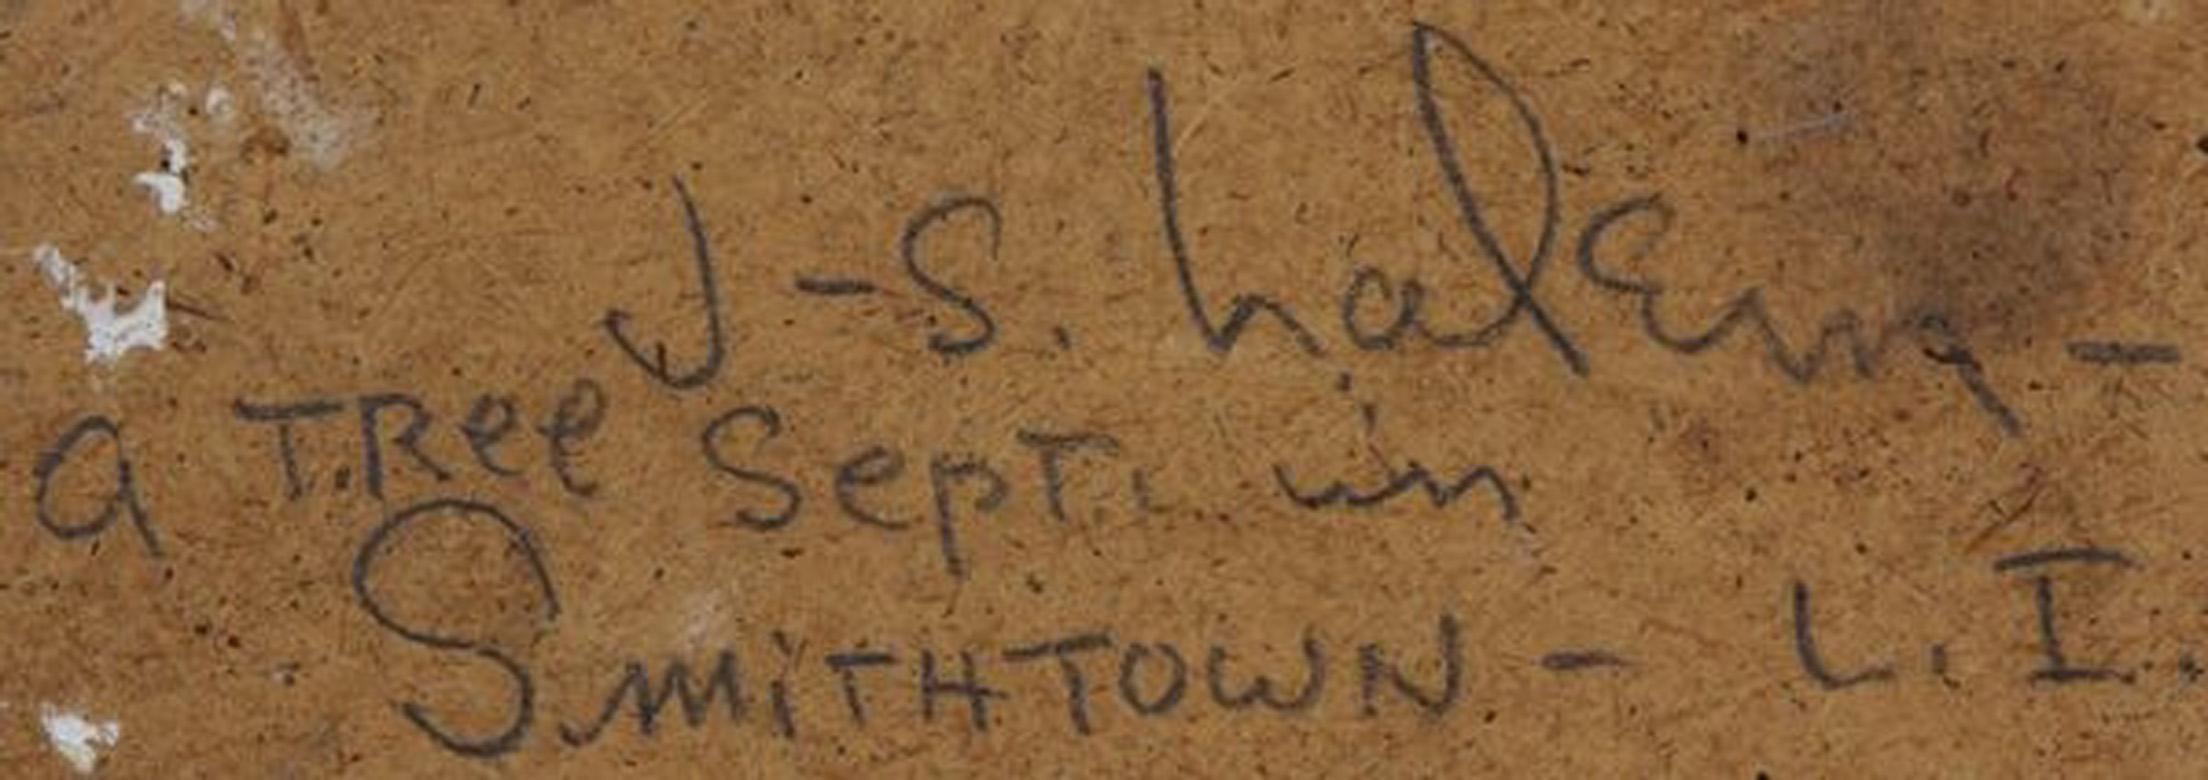 J-S. halem -
a TRee Sept. in
SMiTHTOWN - L.I.